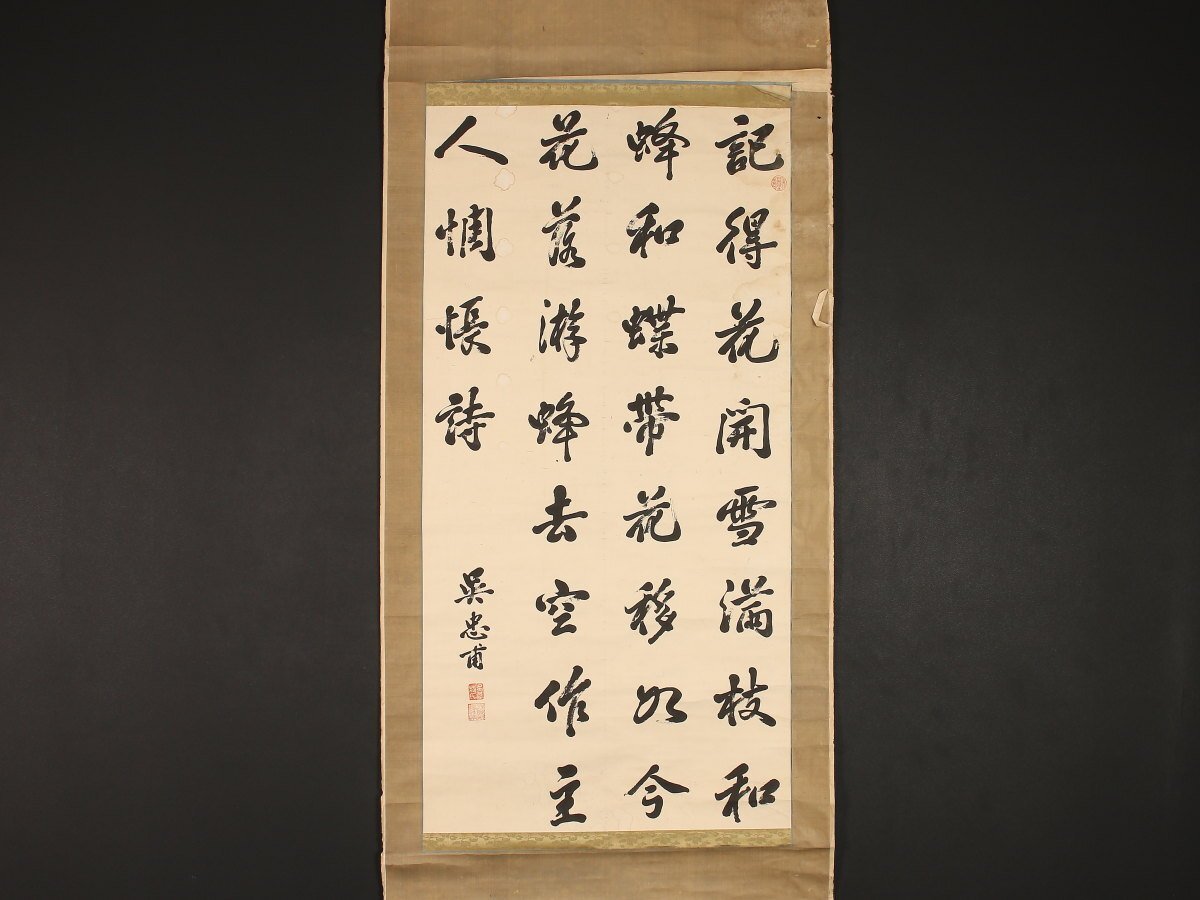 記得花開雪滿枝和
蜂和蝶帶花移如今
花落游蜂去空作主
人惆悵詩
吳忠甫